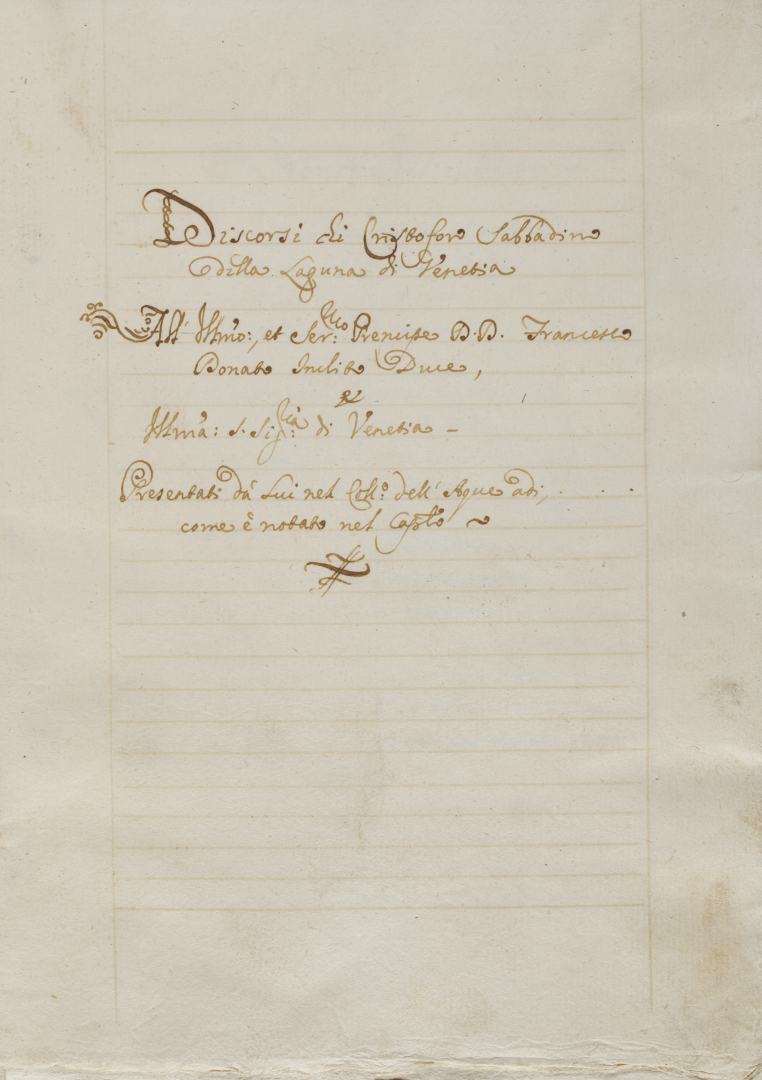 Discorsi di Cristoforo Sabbadino
della Laguna di Venetia
All' Illmo:, et Ser:mo Prencipe D.D. Francesco
Donato Inclito Duce,
et
Illma: S. Sig:ria di Venetia –
Presentati dà Lui nel Coll:o dell' Aque adi, . . .
come è notato nel